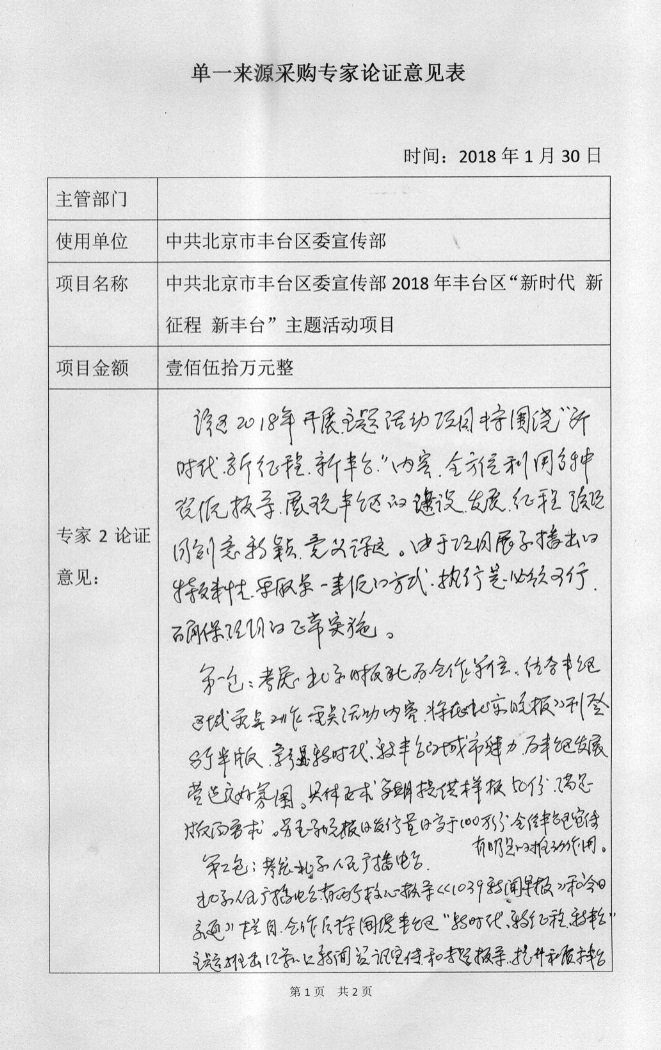 单一来源采购专家论证意见表
时间：2018 年 1 月 30 日
主管部门
使用单位 中共北京市丰台区委宣传部
项目名称 中共北京市丰台区委宣传部 2018 年丰台区“新时代 新
征程 新丰台” 主题活动项目
项目金额 壹佰伍拾万元整
专家 2 论证
意见：
2018年开展主题活动项目将围绕“新
时代、新征程、新丰台”内容，全方位利用
报导，展现丰台区的建设、发展、征程
创意新颖，意义深远。由于项目展示播出的
特殊性，采取单一来源的方式，执行是必须可行，
确保项目的正常实施。
第一包：考虑北京晚报社为合作单位，结合丰台区
区域重点工作、重点活动内容，将在《北京晚报》刊登
8个半版，彰显新时代、新丰台的城市魅力，为丰台区发展
营造良好氛围。具体要求每期提供样报50份，满足
版面要求。北京晚报日发行量日高于100万份，
有明显的推动作用。
第二包：考虑北京人民广播电台。
北京人民广播电台有两个核心报导《1039新闻早报》和《今日
交通》栏目，合作后将围绕丰台区“新时代、新征程、新丰台”
主题推出
第 1 页 共 2 页